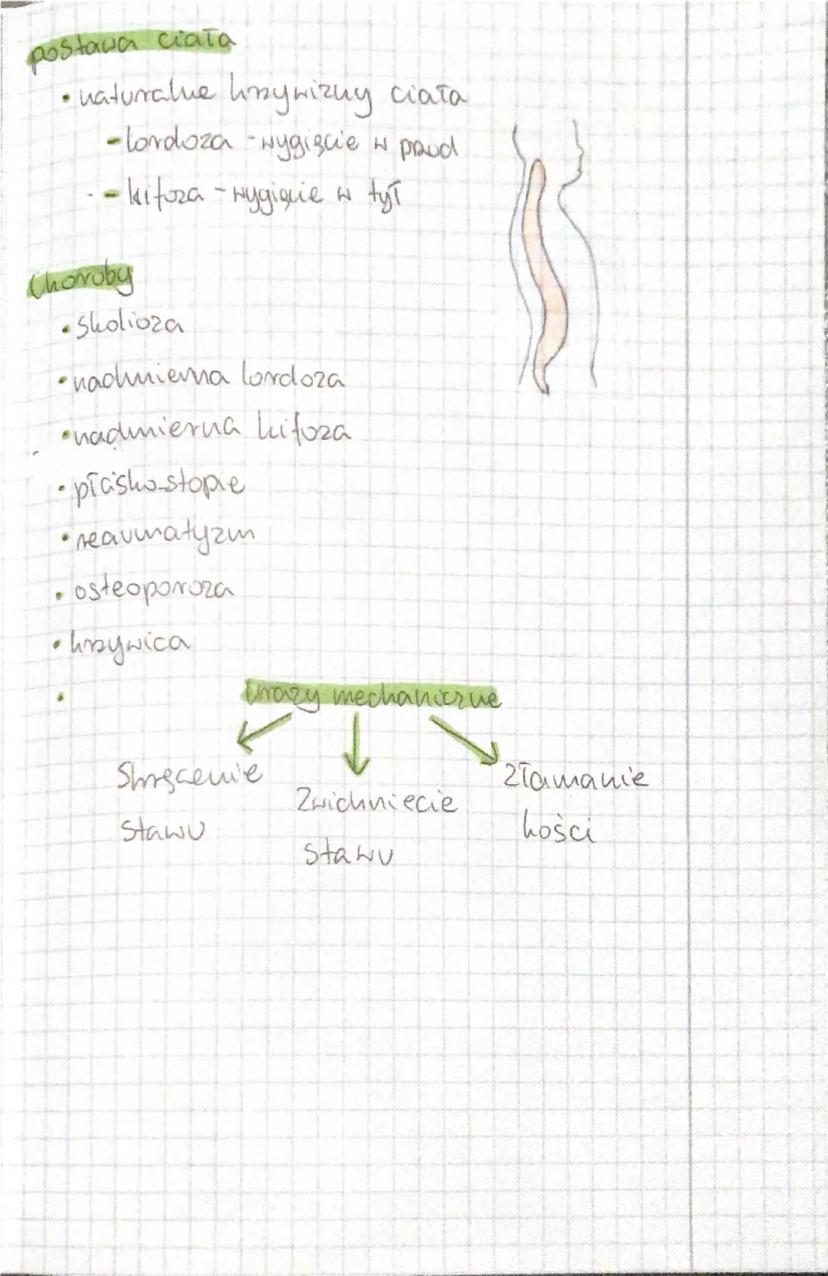 postawa ciała
• naturalne krzywizny ciała
- lordoza - wygięcie w przód
- kifoza - wygięcie w tył
Choroby
• skolioza
• nadmierna lordoza
• nadmierna kifoza
• płaskostopie
• reaumatyzm
• osteoporoza
• krzywica
•
Urazy mechaniczne
Skręcenie
stawu
Zwichniecie
stawu
Złamanie
kości